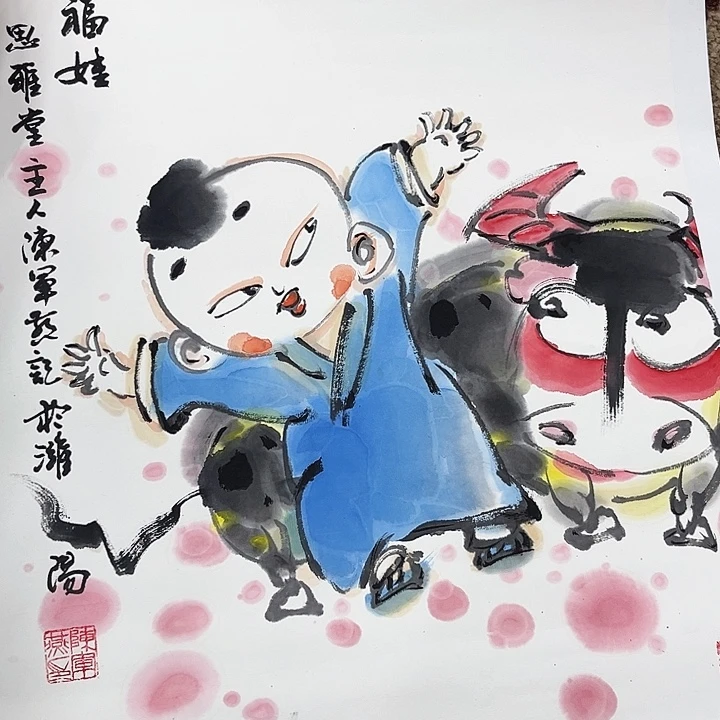 福娃
思雅堂主人陳軍燕記於濰陽
陳軍
燕印